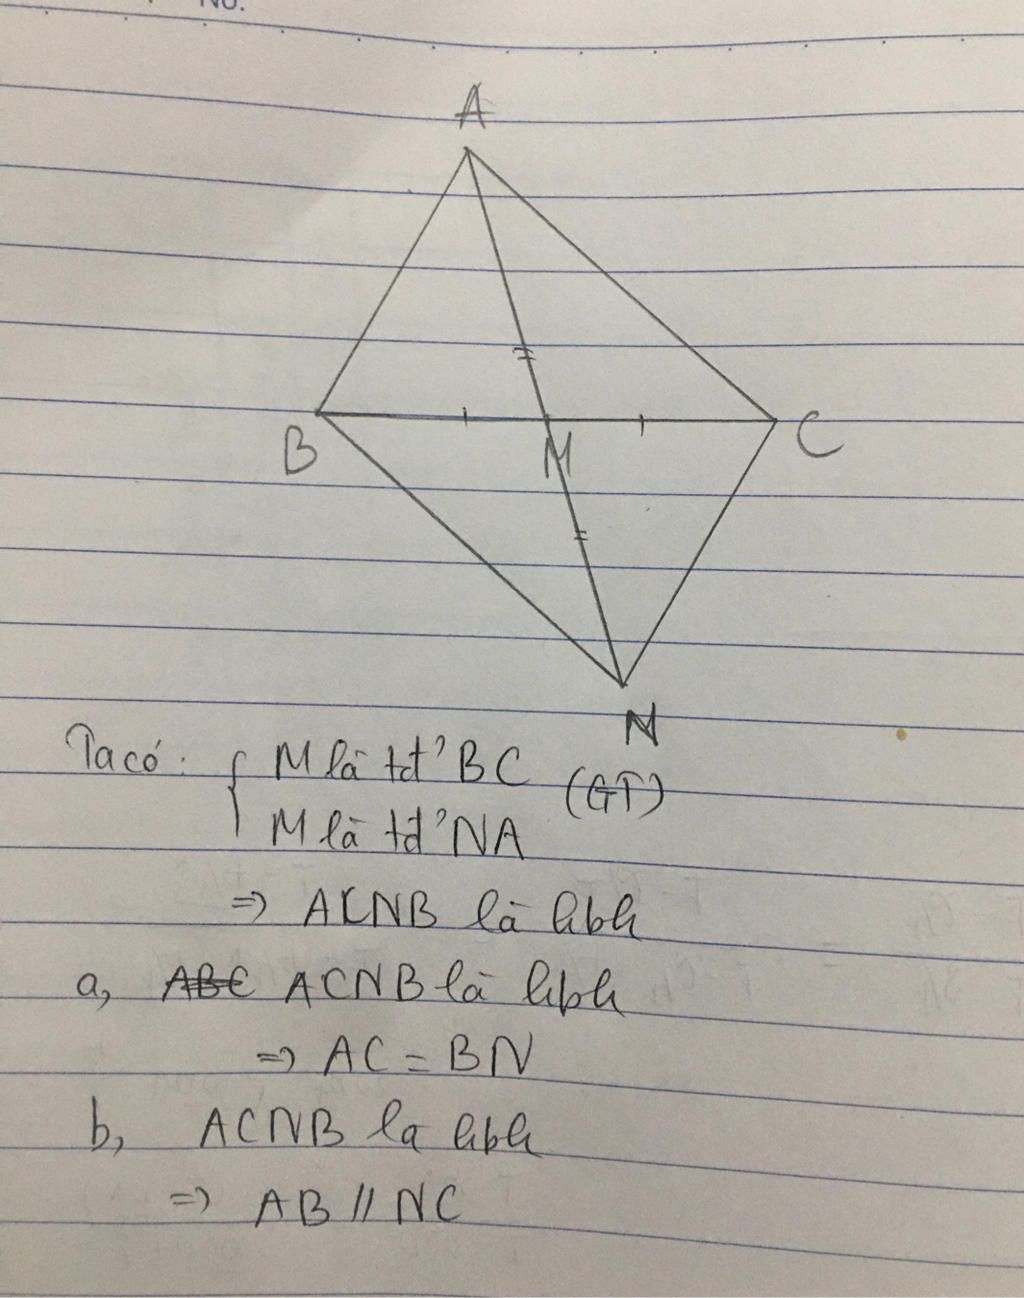 No.
A
B
M
C
N
Ta có: { M là tđ' BC (GT)
M là tđ' NA
=> ACNB là hbh
a, ABC ACNB là hbh
=> AC = BN
b, ACNB la hbh
=> AB // NC